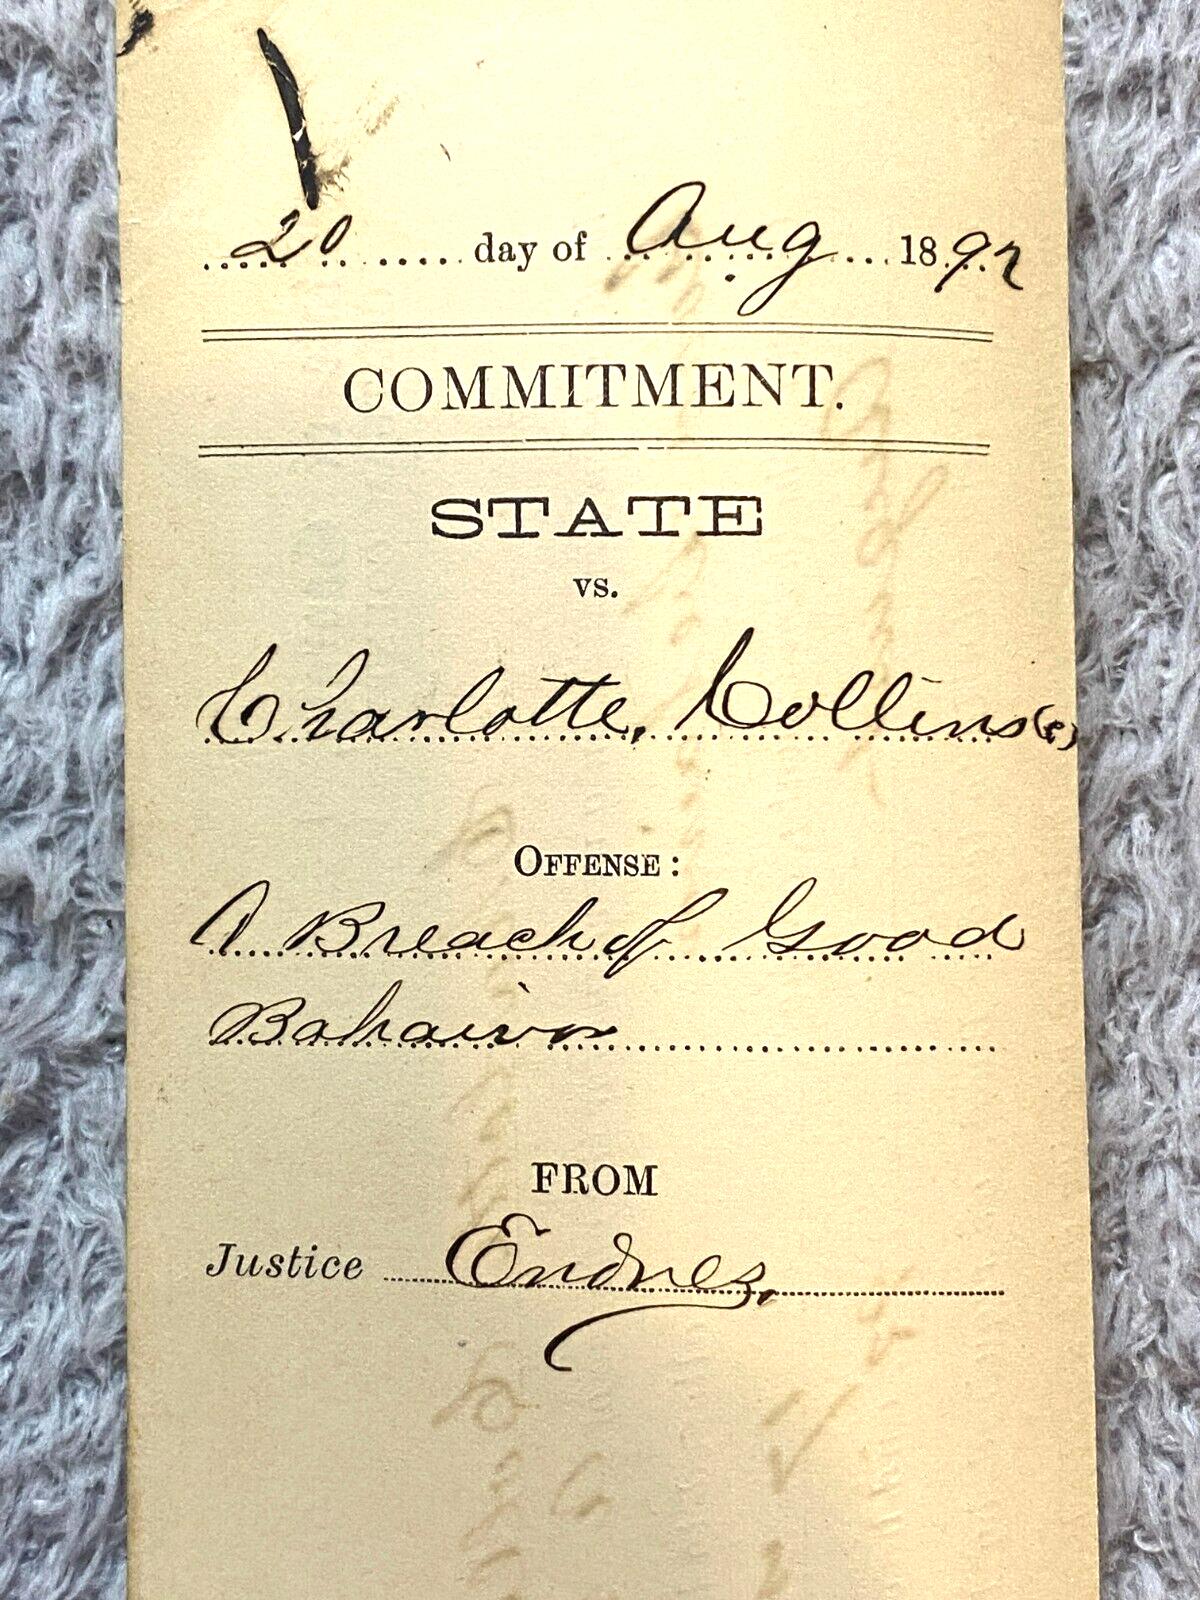 20 day of Aug 1892
COMMITMENT.
STATE
vs.
Charlotte, Collins (c)
OFFENSE:
A Breach of Good
Bahaivor
FROM
Justice Endres,